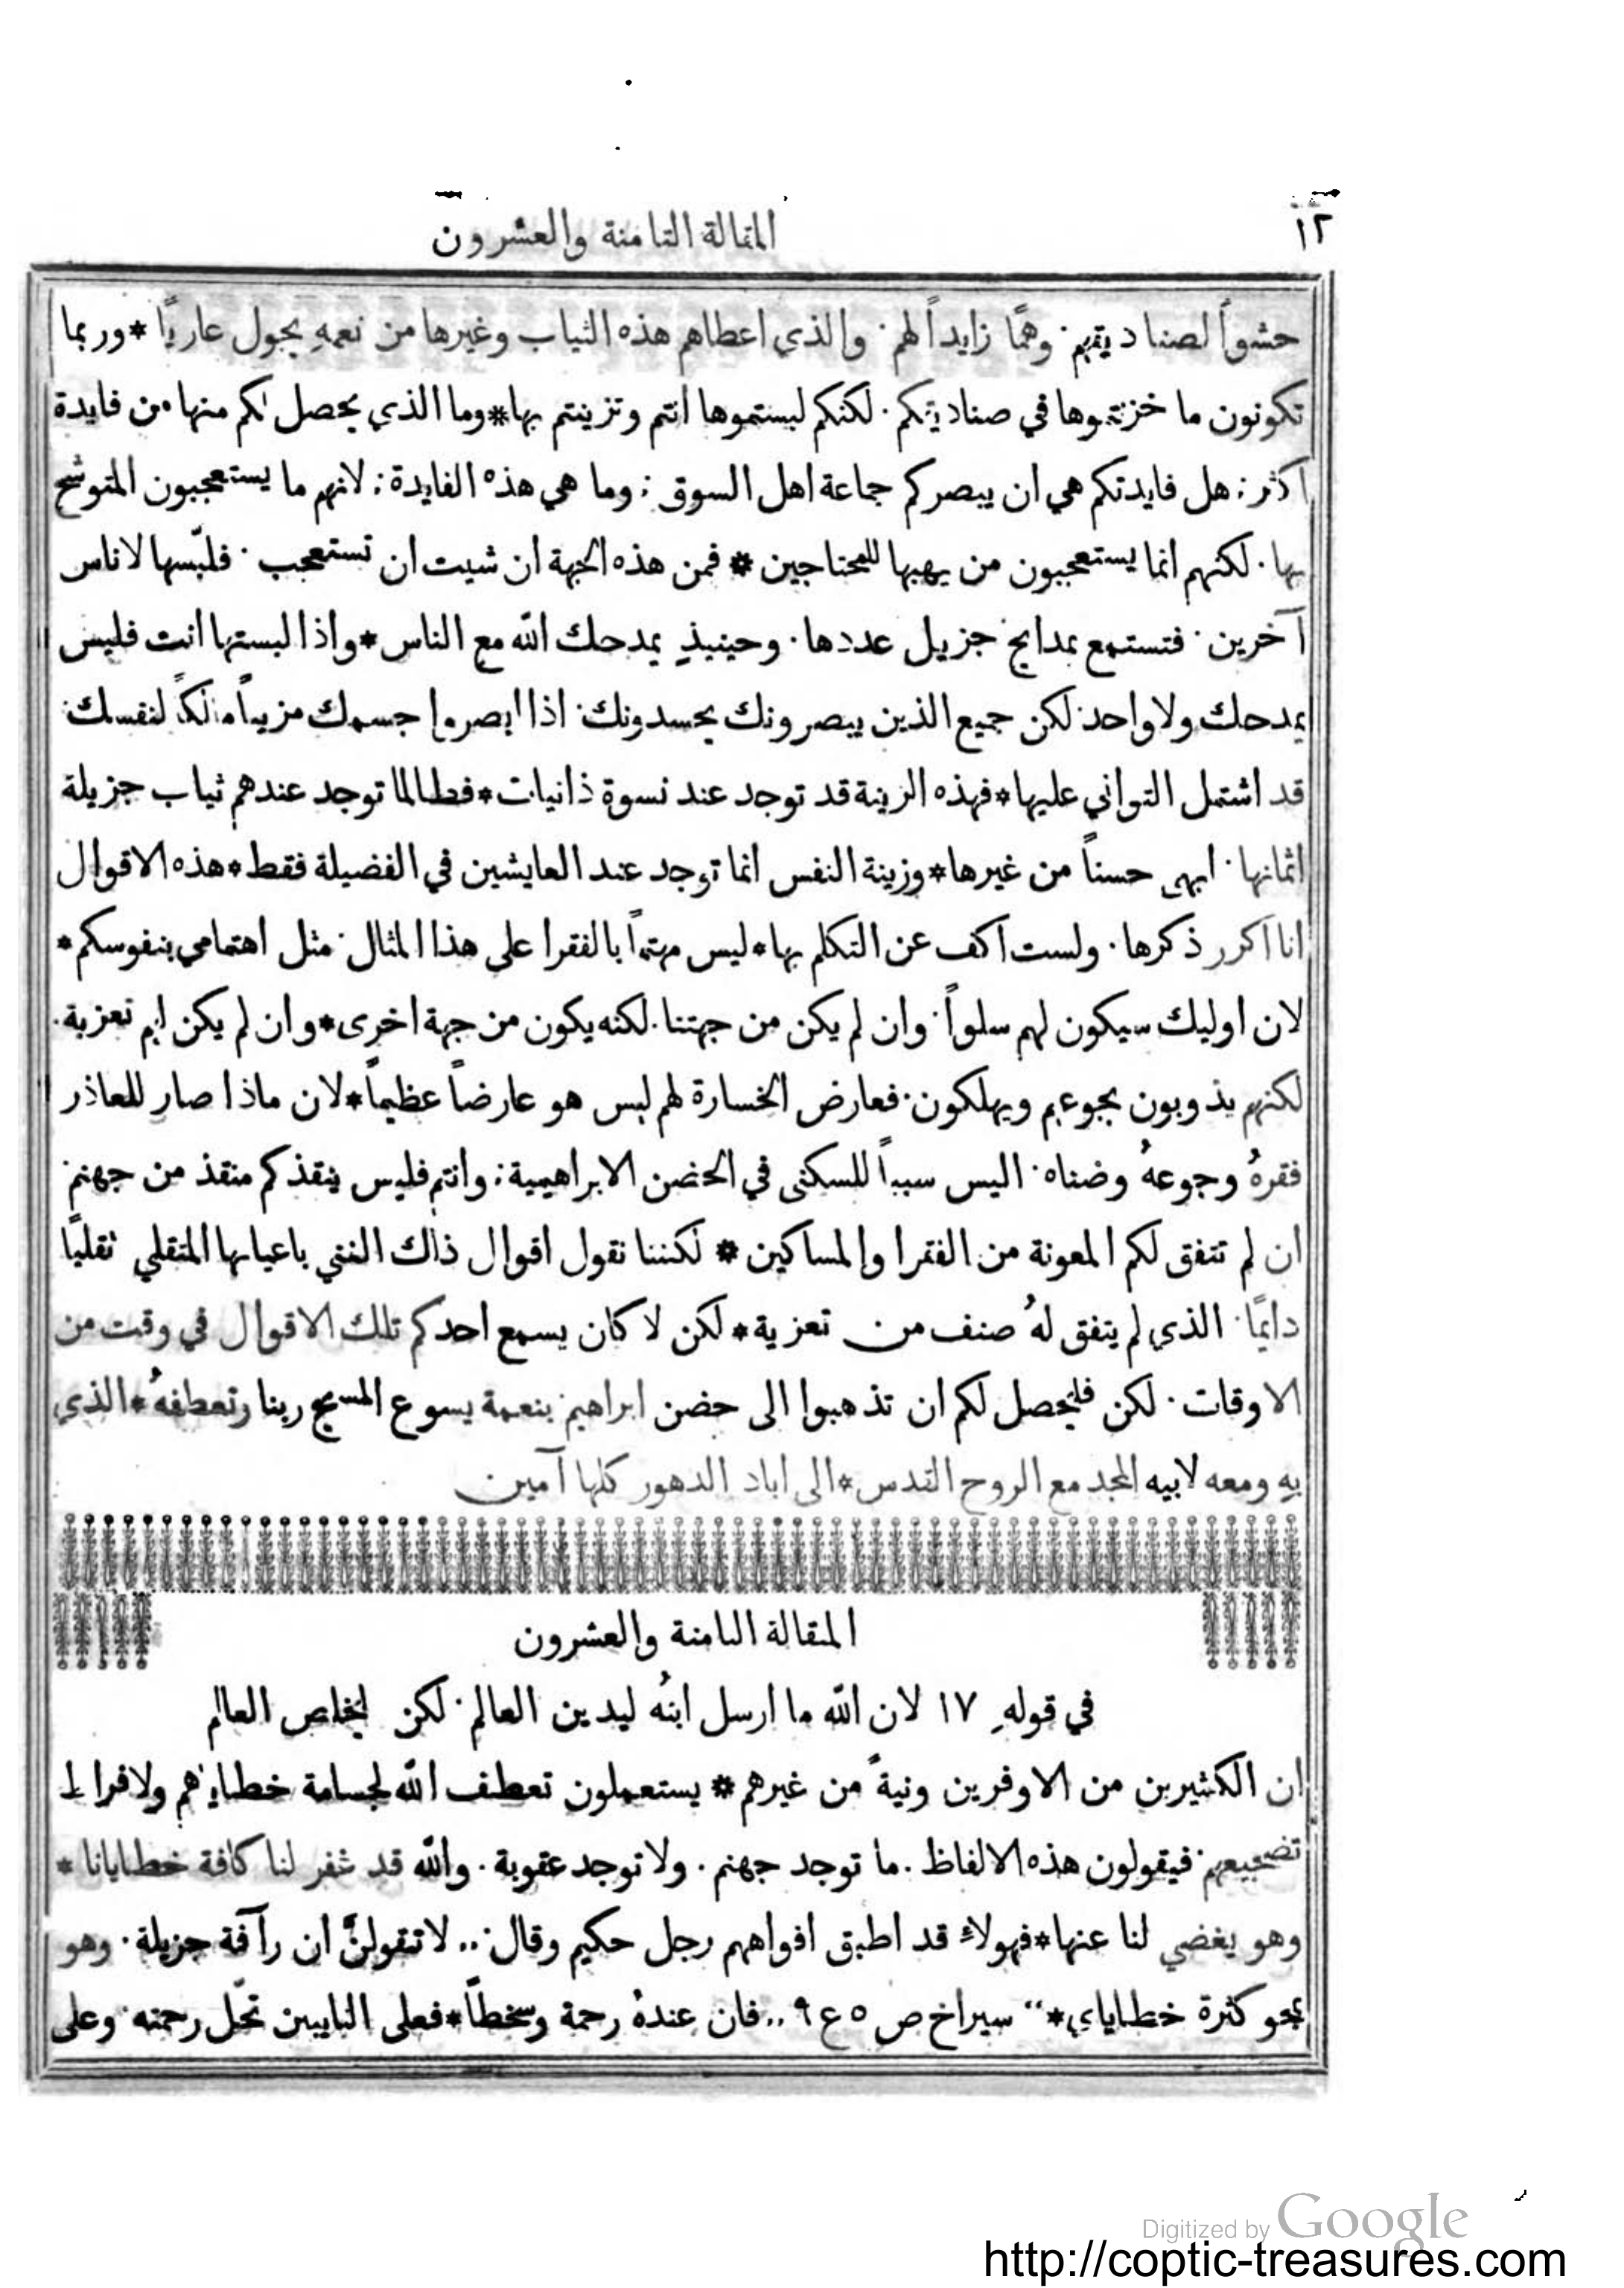 ١٢
المقالة الثامنة والعشرون
حشواً لصناديقهم٠ وهمًّا زايداً لهم٠ والذي اعطاهم هذه الثياب وغيرها من نعمهِ يجول عاريًا * وربما
تكونون ما خزنتموها في صناديقكم٠ لكنكم لبستموها انتم وتزينتم بها * وما الذي يحصل لكم منها من فايدة
اكثر؛ هل فايدتكم هي ان يبصركم جماعة اهل السوق؛ وما هي هذه الفايدة؛ لانهم ما يستعجبون المتوشح
بها٠ لكنهم انما يستعجبون من يهبها للمحتاجين * فمن هذه الجهة ان شيت ان تستعجب٠ فلبّسها لاناس
آخرين٠ فتستمع بمدايح جزيل عددها٠ وحينيذٍ يمدحك الله مع الناس * واذا لبستها انت فليس
يمدحك ولا واحد٠ لكن جميع الذين يبصرونك يحسدونك٠ اذا ابصروا جسمك مزيناً مالكاً لنفسك٠
قد اشتمل التواني عليها * فهذه الزينة قد توجد عند نسوة زانيات * فطالما توجد عندهم ثياب جزيلة
اثمانها٠ ابهى حسناً من غيرها * وزينة النفس انما توجد عند العايشين في الفضيلة فقط * هذه الاقوال
انا اكرر ذكرها٠ ولست اكف عن التكلم بها * ليس مهتماً بالفقرا على هذا المثال٠ مثل اهتمامي بنفوسكم *
لان اوليك سيكون لهم سلواً٠ وان لم يكن من جهتنا٠ لكنه يكون من جهة اخرى * وان لم يكن لهم تعزية٠
لكنهم يذوبون بجوعهم ويهلكون٠ فعارض الخسارة لهم ليس هو عارضاً عظيماً * لان ماذا صار للعاذر
فقرهُ وجوعهُ وضناه٠ اليس سبباً للسكنى في الحضن الابراهيمية؛ وانتم فليس ينقذكم منقذ من جهنم٠
ان لم تتفق لكم المعونة من الفقرا والمساكين * لكننا نقول اقوال ذاك الغني باعيانها المتقلي تقليًا
دايمًا٠ الذي لم يتفق لهُ صنف من تعزية * لكن لا كان يسمع احدكم تلك الاقوال في وقت من
الاوقات٠ لكن فليحصل لكم ان تذهبوا الى حضن ابراهيم٠ بنعمة يسوع المسيح ربنا وتعطفهُ * الذي
بهِ ومعه لابيه المجد مع الروح القدس * الى اباد الدهور كلها آمين
المقالة الثامنة والعشرون
في قولهِ ١٧ لان الله ما ارسل ابنهُ ليدين العالم٠ لكن ليخلص العالم
ان الكثيرين من الاوفرين ونيةً من غيرهم * يستعملون تعطف الله لجسامة خطاياهم ولافراط
تضجيعهم٠ فيقولون هذه الالفاظ٠ ما توجد جهنم٠ ولا توجد عقوبة٠ والله قد غفر لنا كافة خطايانا *
وهو يغضي لنا عنها * فهولاءِ قد اطبق افواههم رجل حكيم وقال٠،، لا تقولنَّ ان رآفة جزيلة٠ وهو
يمحو كثرة خطاياي * ‘‘ سيراخ ص ٥ ع ٩ ،، فان عندهُ رحمة وسخطاً * فعلى التايبين تحّل رحمته٠ وعلى
Digitized by Google
http://coptic-treasures.com